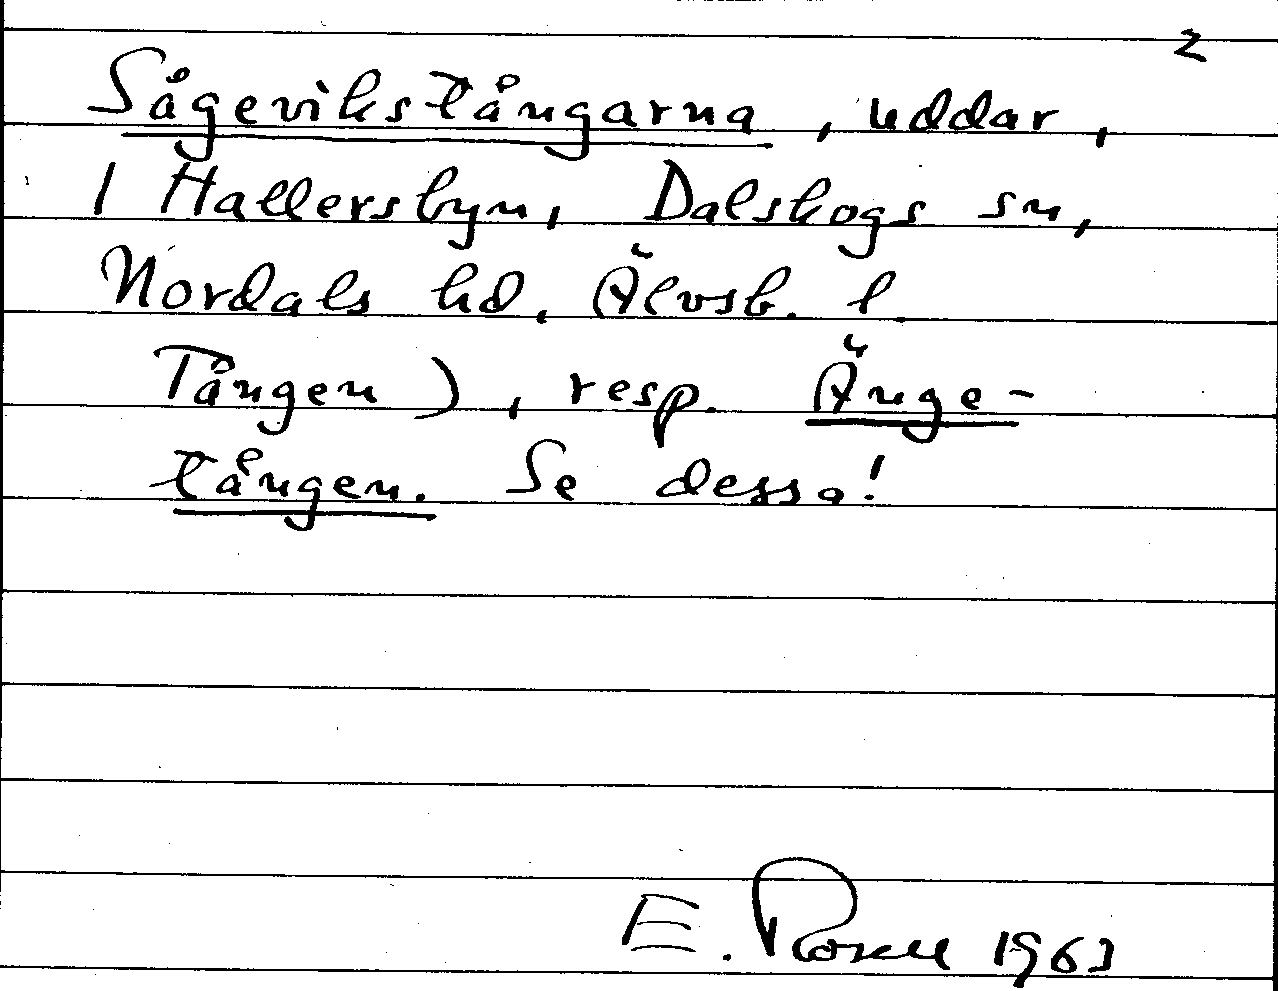 2
Sågevikstångarna, uddar,
1 Hallersbyn, Dalskogs sn,
Nordals hd, Älvsb. l.
Tången), resp. Änge-
tången. Se dessa!
E. Rosell 1963